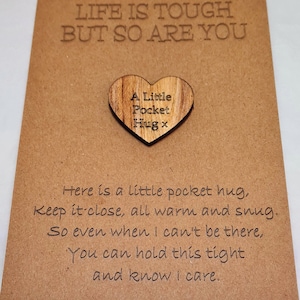 LIFE IS TOUGH
BUT SO ARE YOU
A Little
Pocket
Hug x
Here is a little pocket hug,
Keep it close, all warm and snug.
So even when I can't be there,
You can hold this tight
and know I care.